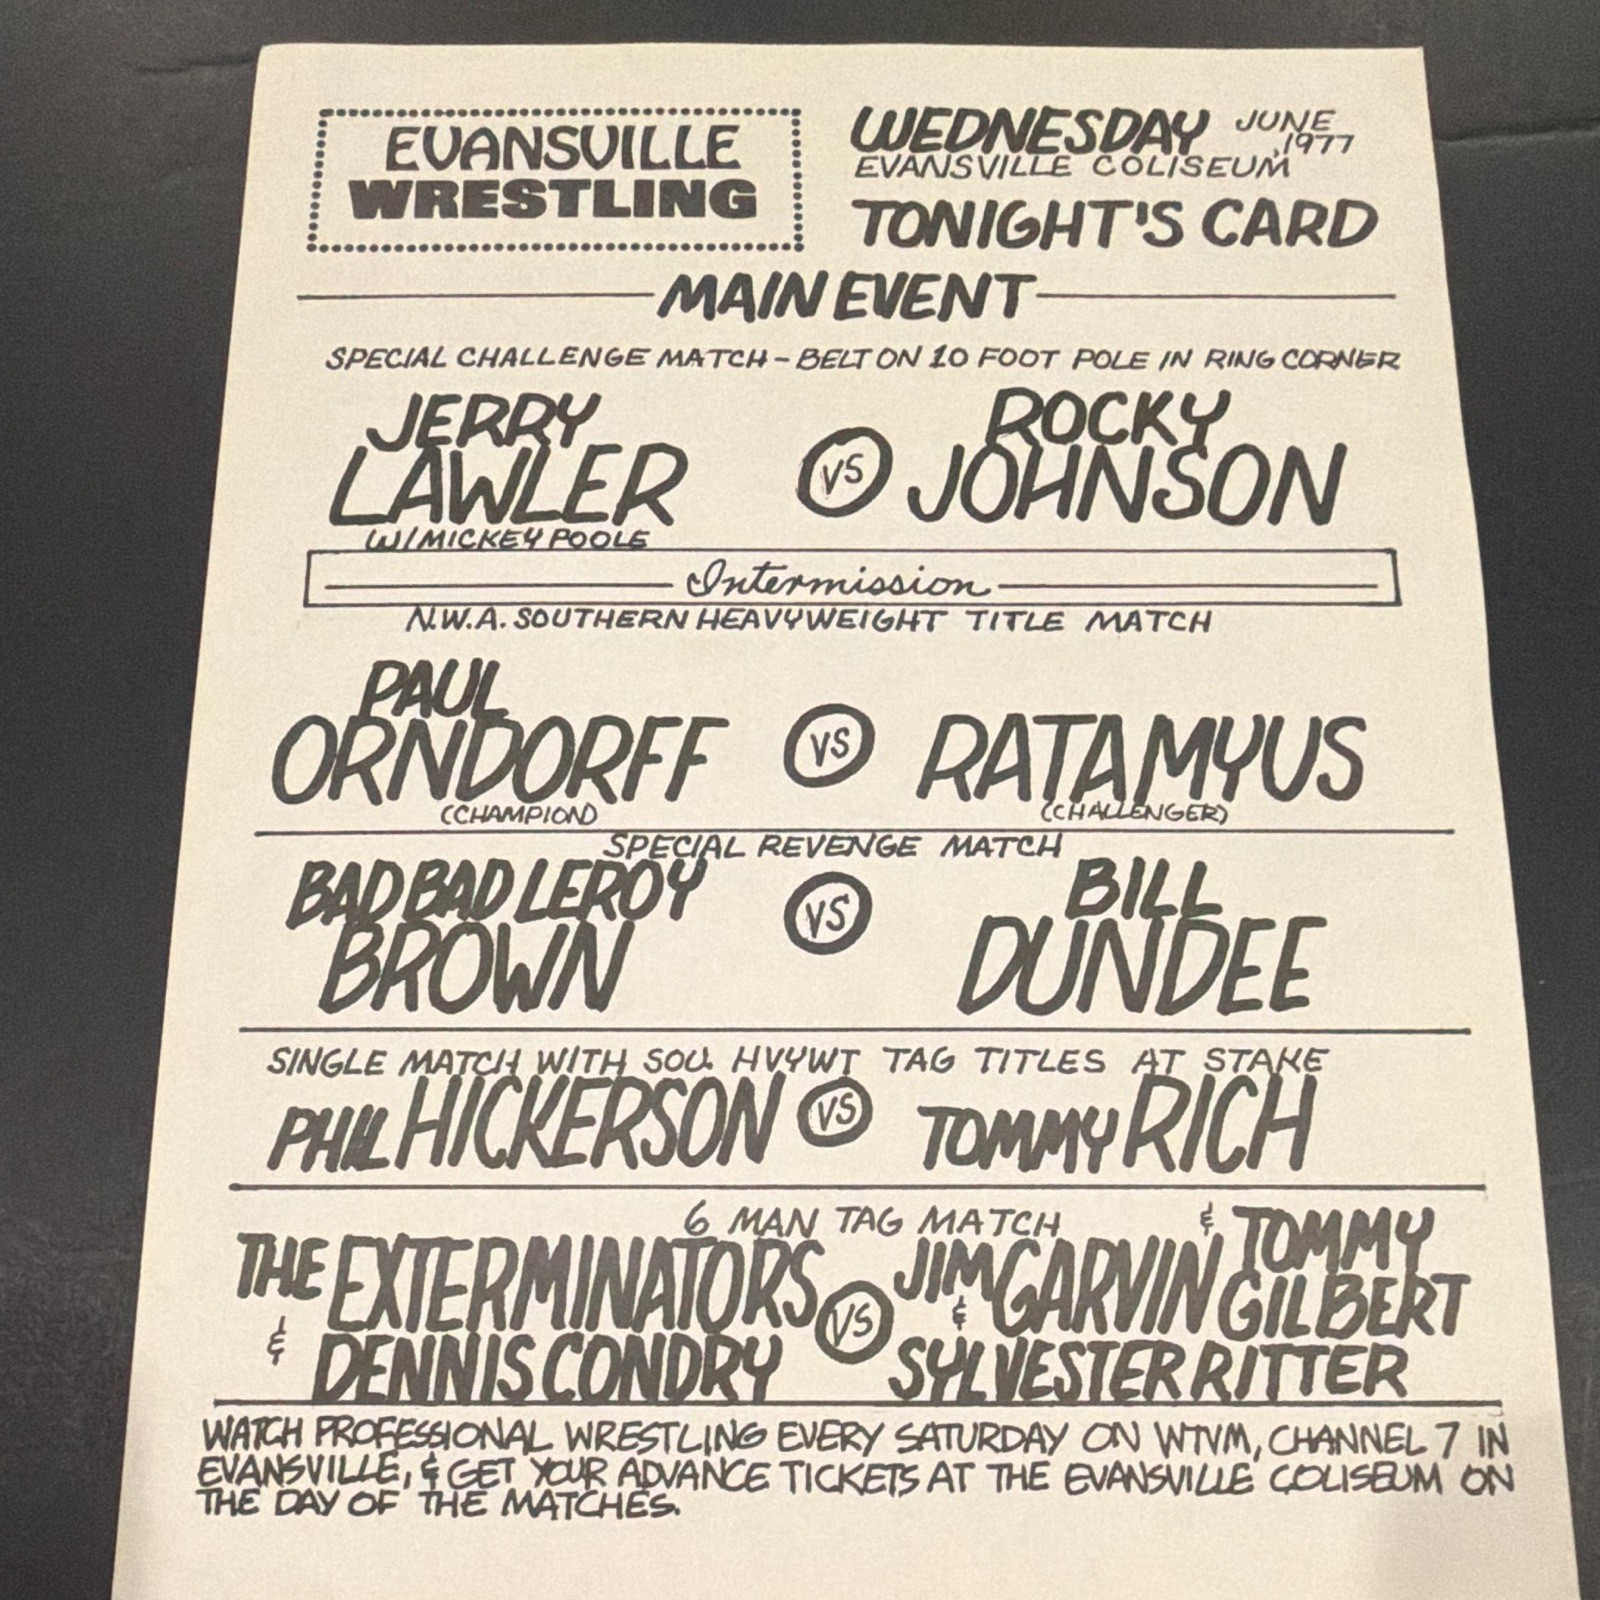 EVANSVILLE
WRESTLING
WEDNESDAY JUNE, 1977
EVANSVILLE COLISEUM
TONIGHT'S CARD
MAIN EVENT
SPECIAL CHALLENGE MATCH - BELT ON 10 FOOT POLE IN RING CORNER
JERRY
LAWLER
W/MICKEY POOLE
VS
ROCKY
JOHNSON
Intermission
N.W.A. SOUTHERN HEAVYWEIGHT TITLE MATCH
PAUL
ORNDORFF
(CHAMPION)
VS
RATAMYUS
(CHALLENGER)
SPECIAL REVENGE MATCH
BAD BAD LEROY
BROWN
VS
BILL
DUNDEE
SINGLE MATCH WITH SOU. HVYWT TAG TITLES AT STAKE
PHIL HICKERSON VS TOMMY RICH
6 MAN TAG MATCH
THE EXTERMINATORS
& DENNIS CONDRY
VS
JIM GARVIN & TOMMY GILBERT
& SYLVESTER RITTER
WATCH PROFESSIONAL WRESTLING EVERY SATURDAY ON WTVM, CHANNEL 7 IN
EVANSVILLE, & GET YOUR ADVANCE TICKETS AT THE EVANSVILLE COLISEUM ON
THE DAY OF THE MATCHES.